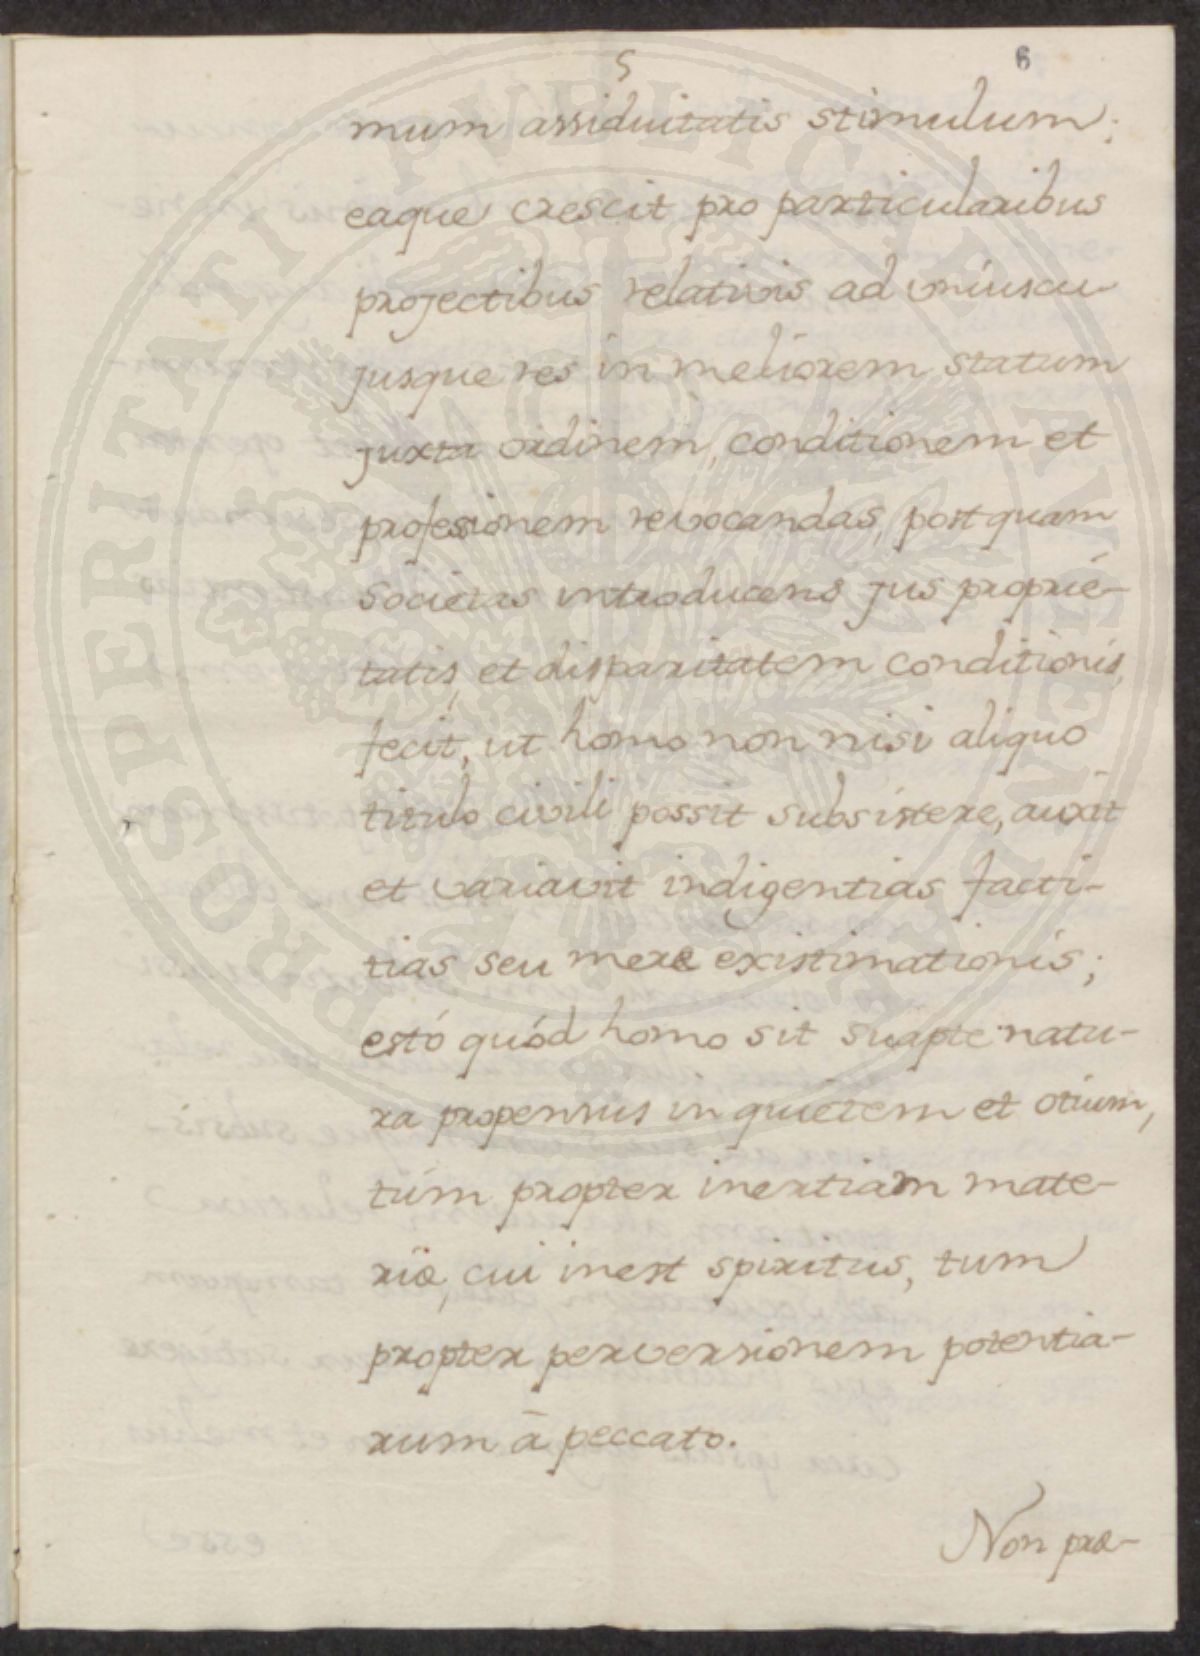 5
6
mum assiduitatis stimulum:
eaque crescit pro particularibus
projectibus relativis ad uniuscu-
jusque res in meliorem statum
juxta ordinem, conditionem et
profesionem revocandas, postquam
societas introducens jus proprie-
tatis, et disparitatem conditionis,
fecit, ut homo non nisi aliquo
titulo civili possit subsistere, auxit
et variavit indigentias facti-
tias seu mere existimationis;
estó quód homo sit suapte natu-
ra propensus in quietem et otium,
túm propter inertiam mate-
riæ, cui inest spiritus, tum
propter perversionem potentia-
rum à peccato.
Non præ-
PROSPERITATI PVBLICAE AVGENDAE